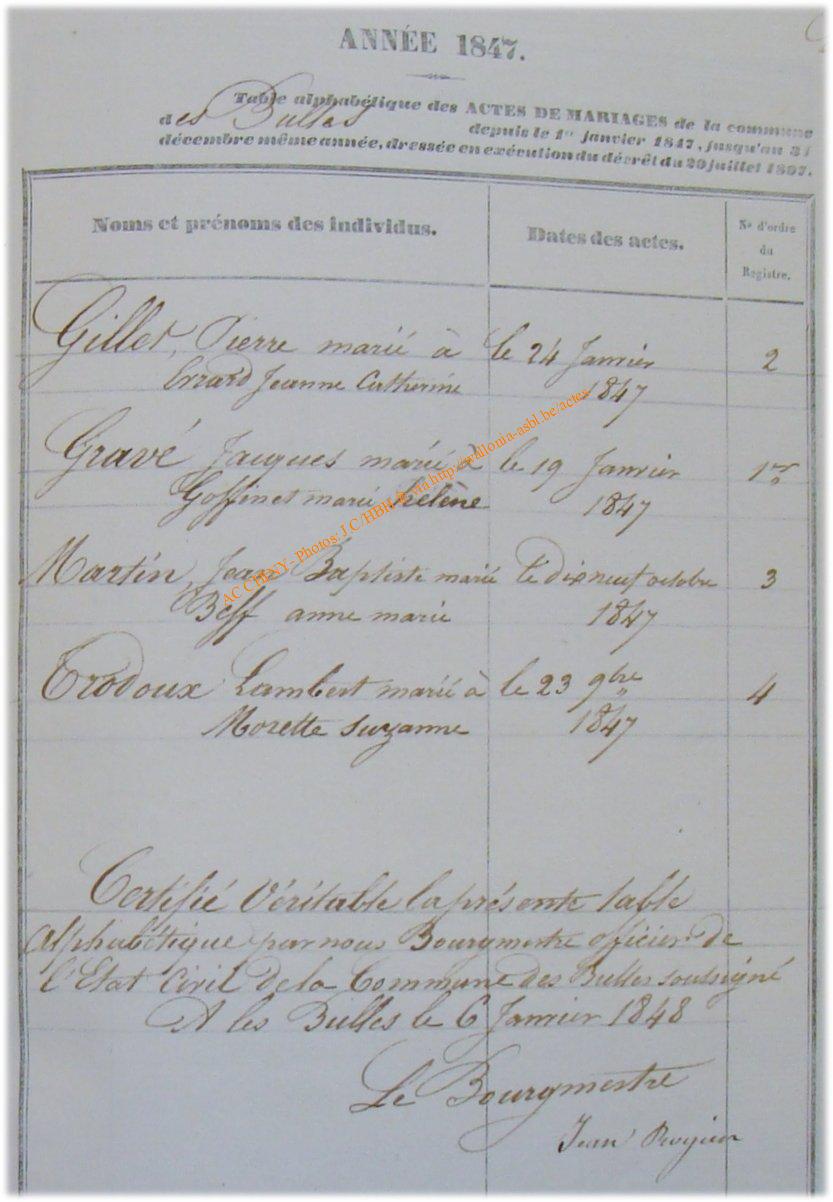 ANNÉE 1847.
Table alphabétique des ACTES DE MARIAGES de la commune
des Bulles depuis le 1er janvier 1847, jusqu'au 31
décembre même année, dressée en exécution du décrèt du 20 juillet 1807.
Noms et prénoms des individus. Dates des actes. No d'ordre du Registre.
Gillet, Pierre marié à le 24 Janvier 2
Errard Jeanne Catherine 1847
Gravé Jacques marié à le 19 Janvier 1er
Goffinet marie hélène 1847
Martin, Jean Baptiste marié le dix neuf octobre 3
Beff anne marie 1847
Trodoux Lambert marié à le 23 9bre 4
Morette Suzanne 1847
AC CHINY - Photos: J.C/HBH-fr via http://wallonia-asbl.be/actes
Certifié Véritable la présente table
Alphabétique par nous Bourgmestre officier de
l'Etat Civil de la Commune des Bulles soussigné
A les Bulles le 6 Janvier 1848
Le Bourgmestre
Jean